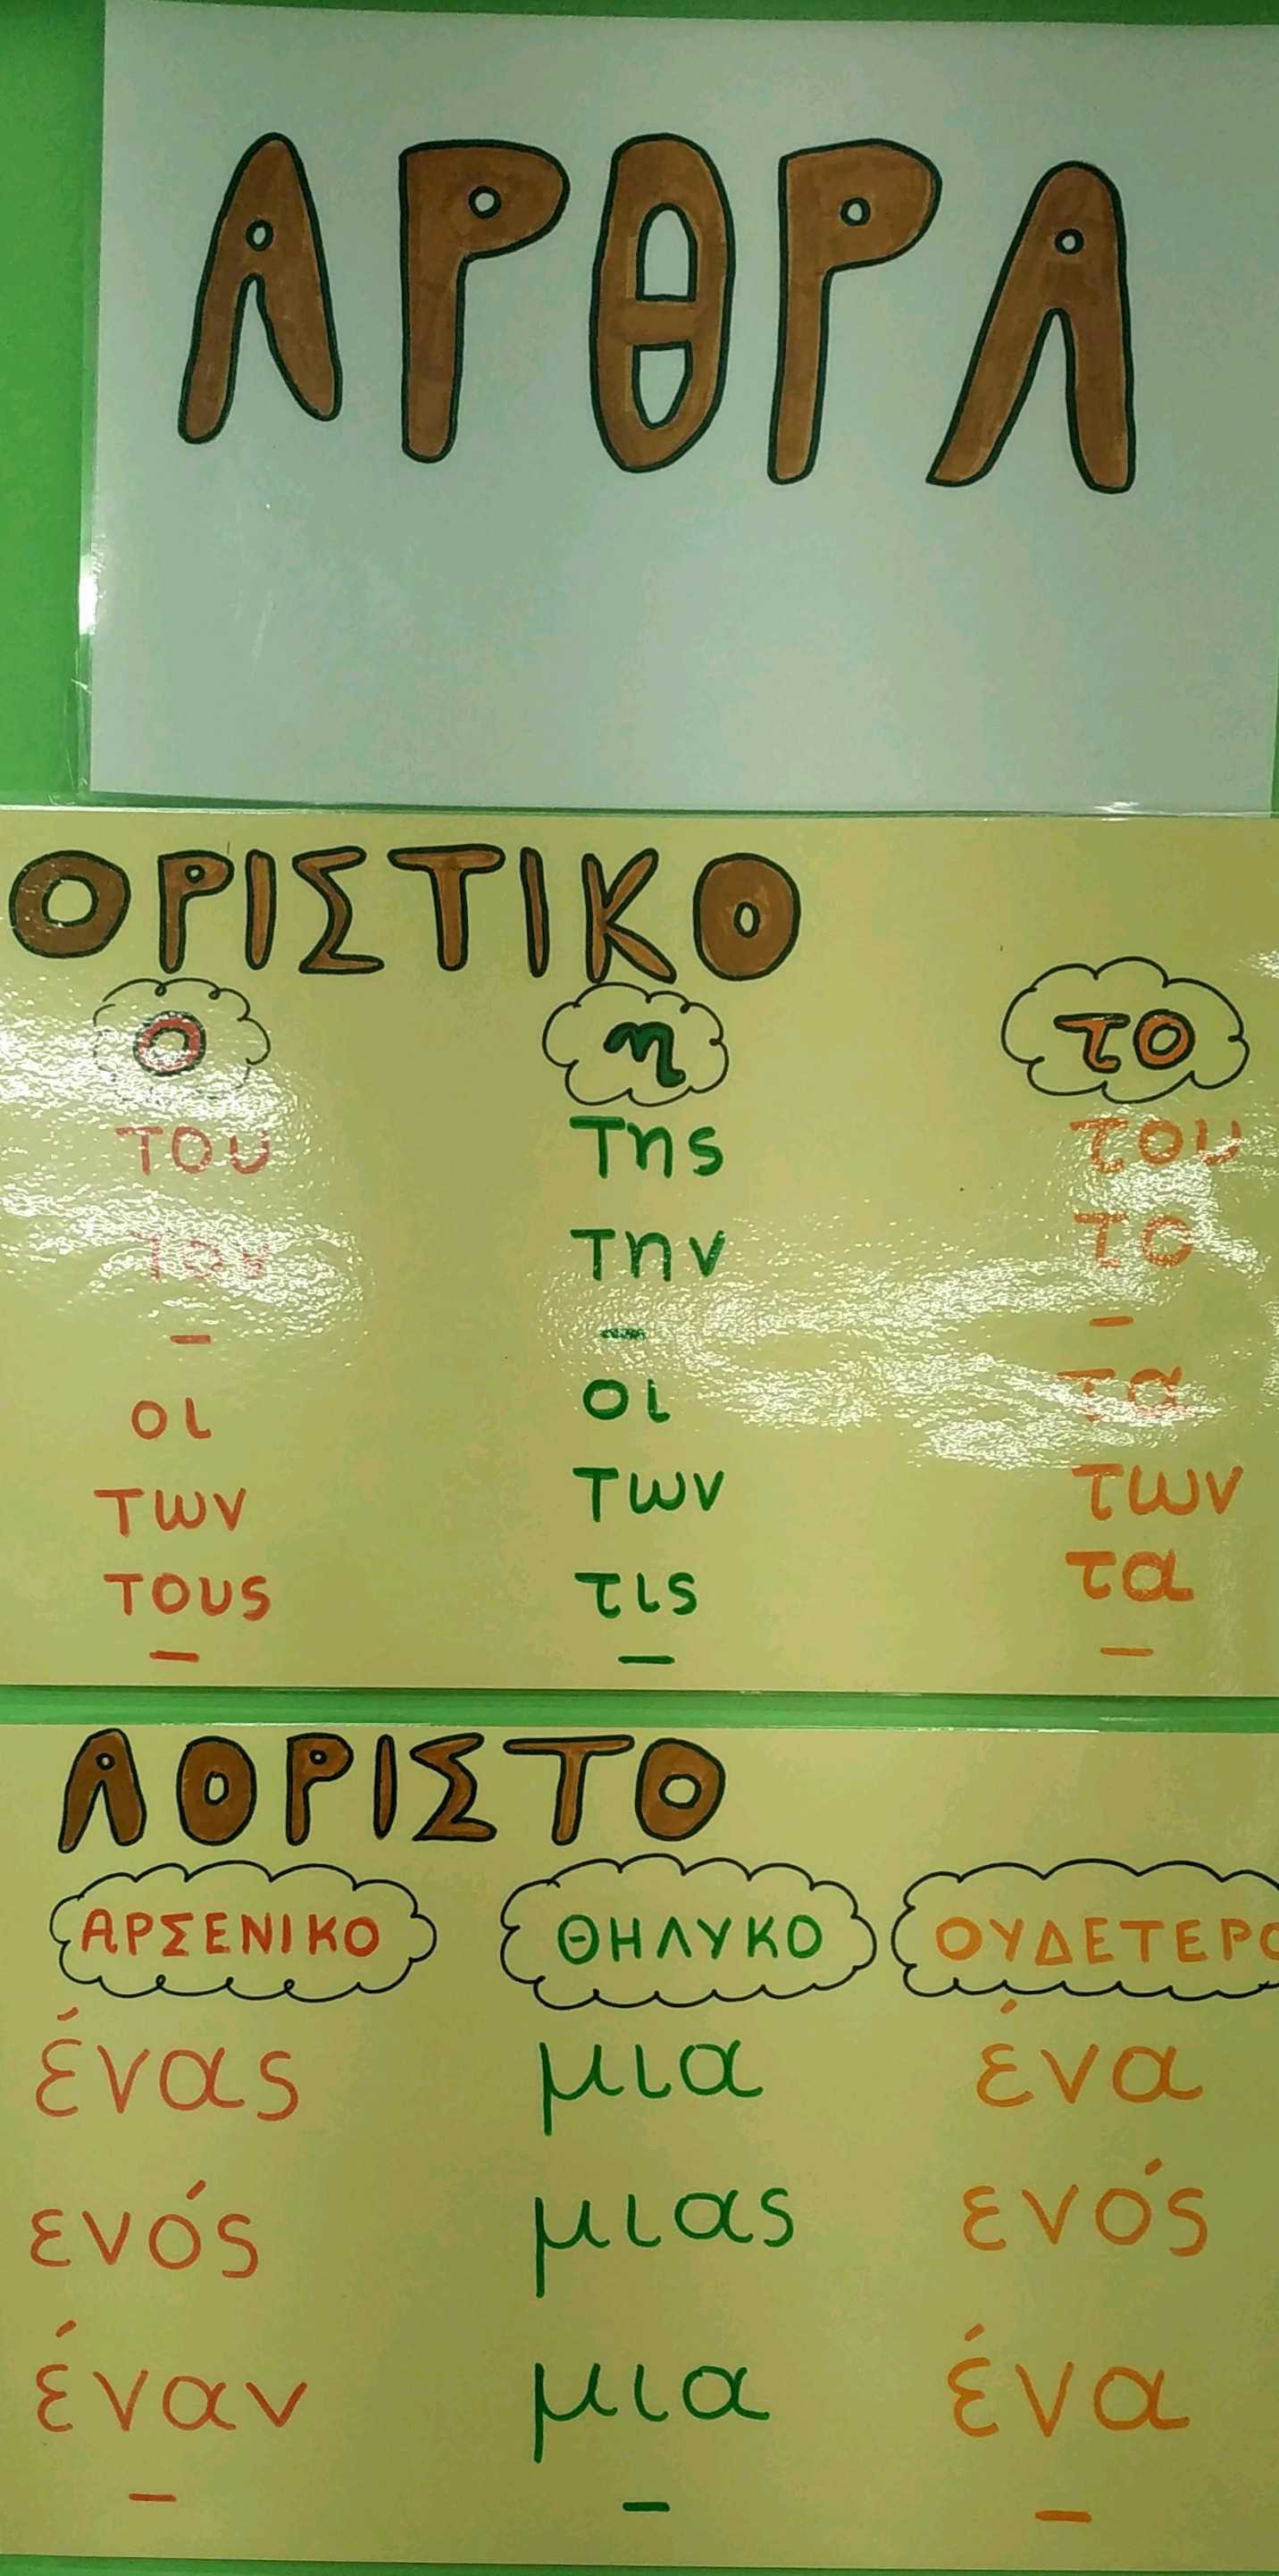 ΑΡΘΡΑ
ΟΡΙΣΤΙΚΟ
ο η το
του της του
τον την το
– – –
οι οι τα
των των των
τους τις τα
– – –
ΑΟΡΙΣΤΟ
ΑΡΣΕΝΙΚΟ ΘΗΛΥΚΟ ΟΥΔΕΤΕΡΟ
ένας μια ένα
ενός μιας ενός
έναν μια ένα
– – –